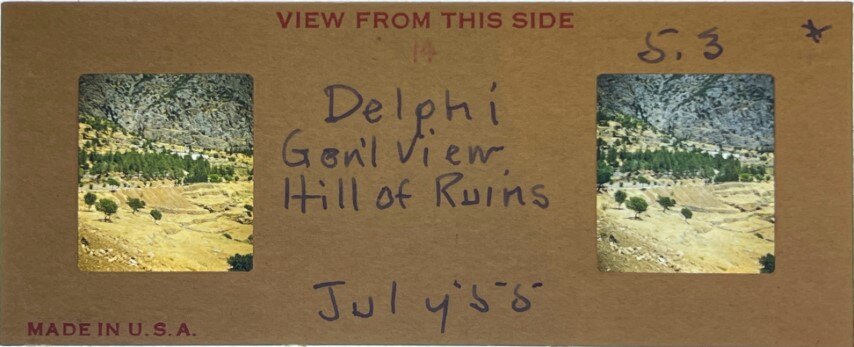 VIEW FROM THIS SIDE
14
5.3 *
Delphi
Gen'l View
Hill of Ruins
July '55
MADE IN U.S.A.